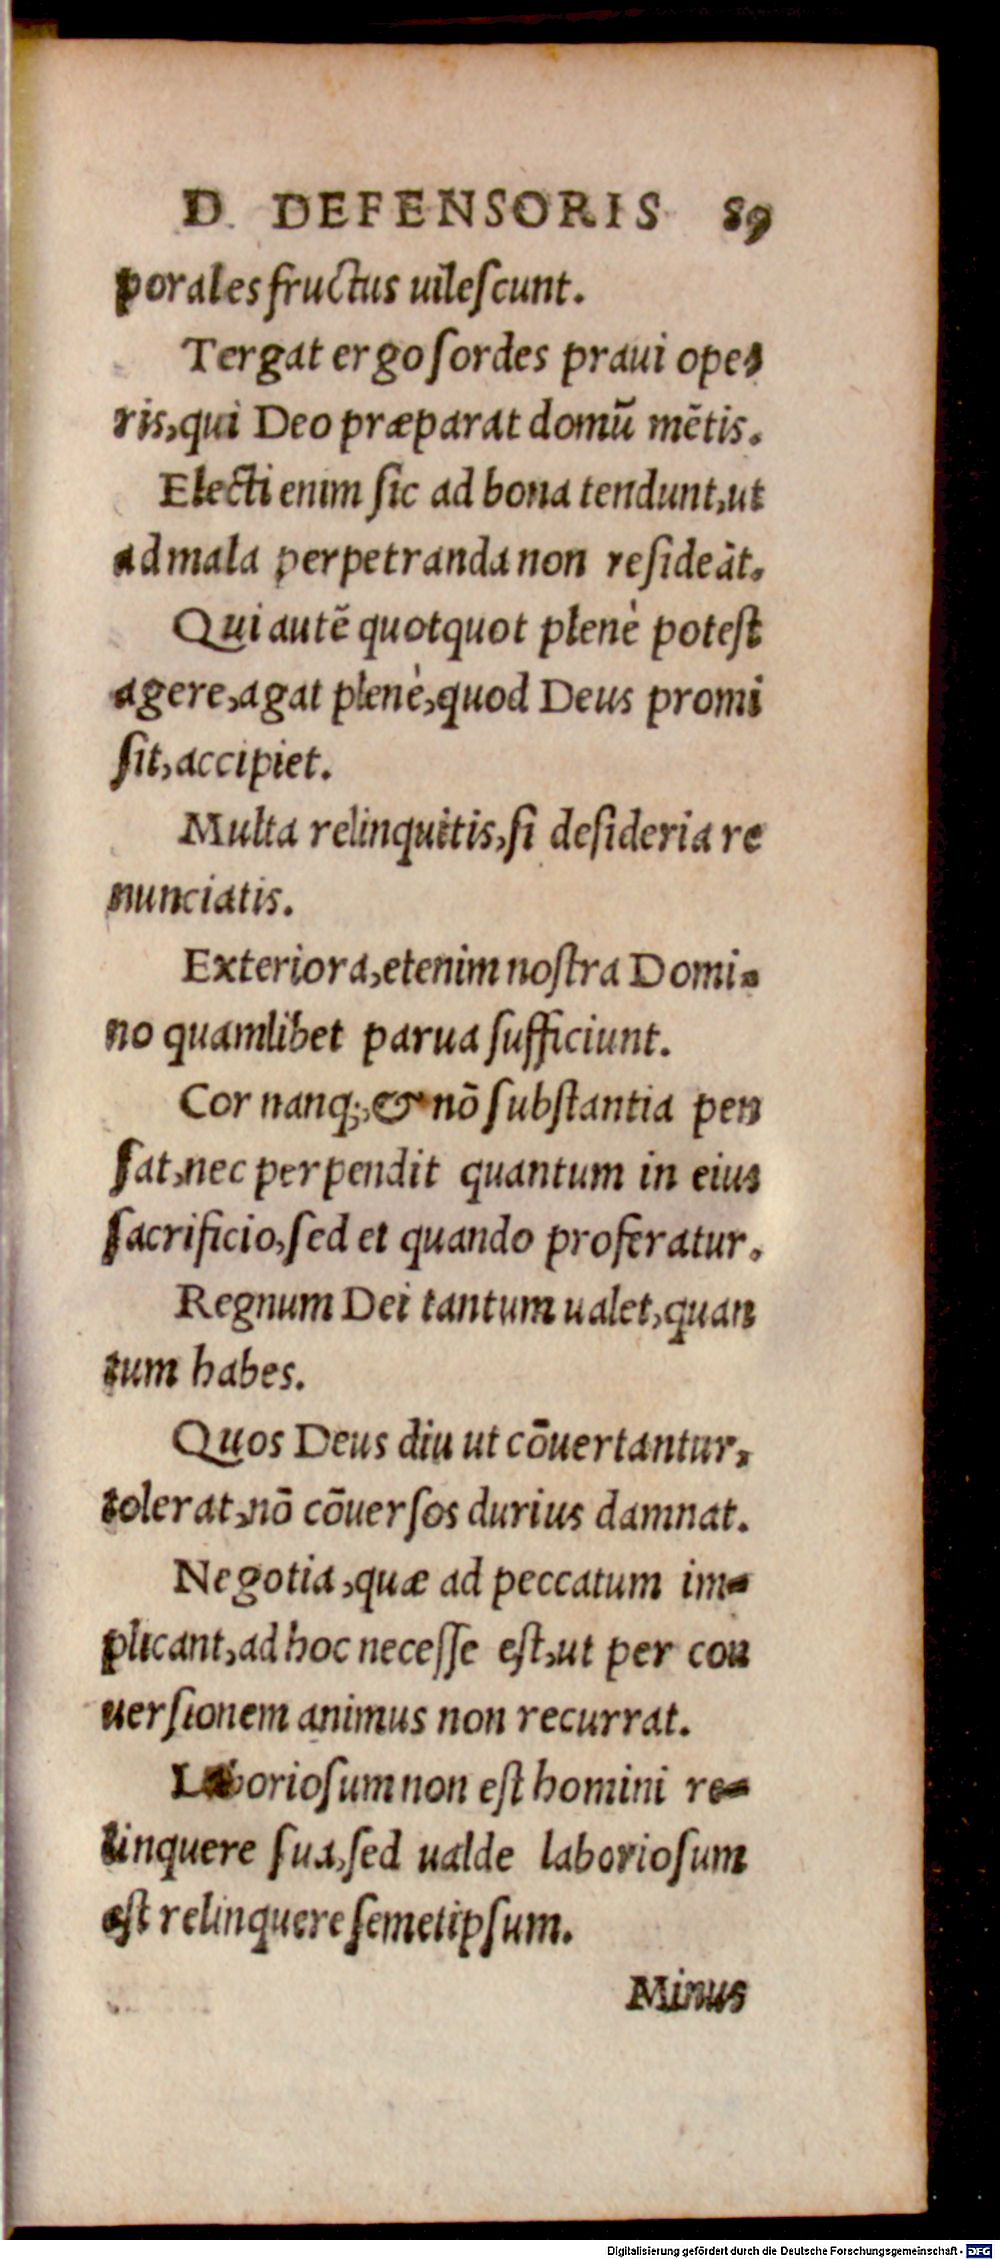 D. DEFENSORIS 89
porales fructus uilescunt.
Tergat ergo sordes praui ope-
ris, qui Deo præparat domũ mẽtis.
Electi enim sic ad bona tendunt, ut
ad mala perpetranda non resideãt.
Qui autẽ quotquot plenè potest
agere, agat plenè, quod Deus promi
sit, accipiet.
Multa relinquitis, si desideria re
nunciatis.
Exteriora, etenim nostra Domi-
no quamlibet parua sufficiunt.
Cor nanq;, & nõ substantia pen
sat, nec perpendit quantum in eius
sacrificio, sed et quando proferatur.
Regnum Dei tantum ualet, quan
tum habes.
Quos Deus diu ut cõuertantur,
tolerat, nõ cõuersos durius damnat.
Negotia, quæ ad peccatum im-
plicant, ad hoc necesse est, ut per con
uersionem animus non recurrat.
Laboriosum non est homini re-
linquere sua, sed ualde laboriosum
est relinquere semetipsum.
Minus
Digitalisierung gefördert durch die Deutsche Forschungsgemeinschaft - DFG